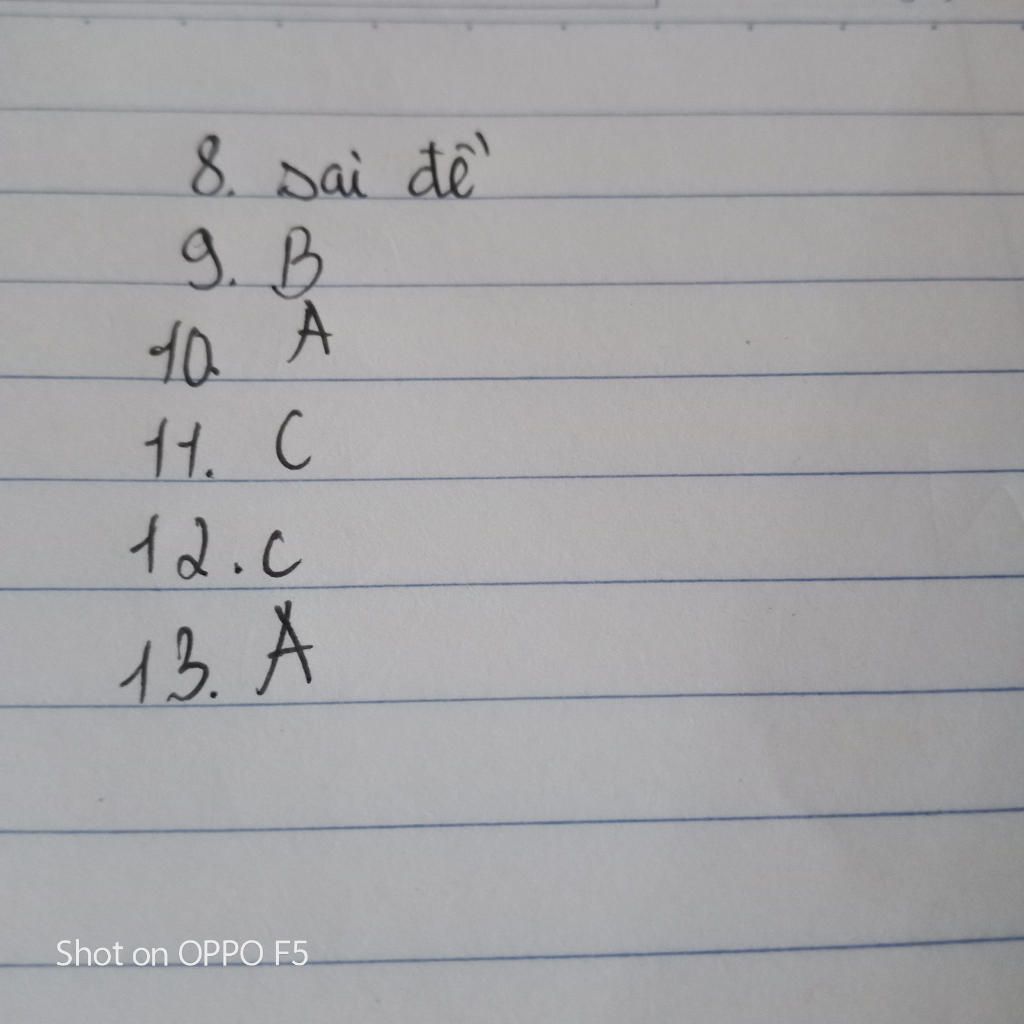 8. sai đề
9. B
10. A
11. C
12. C
13. A
Shot on OPPO F5